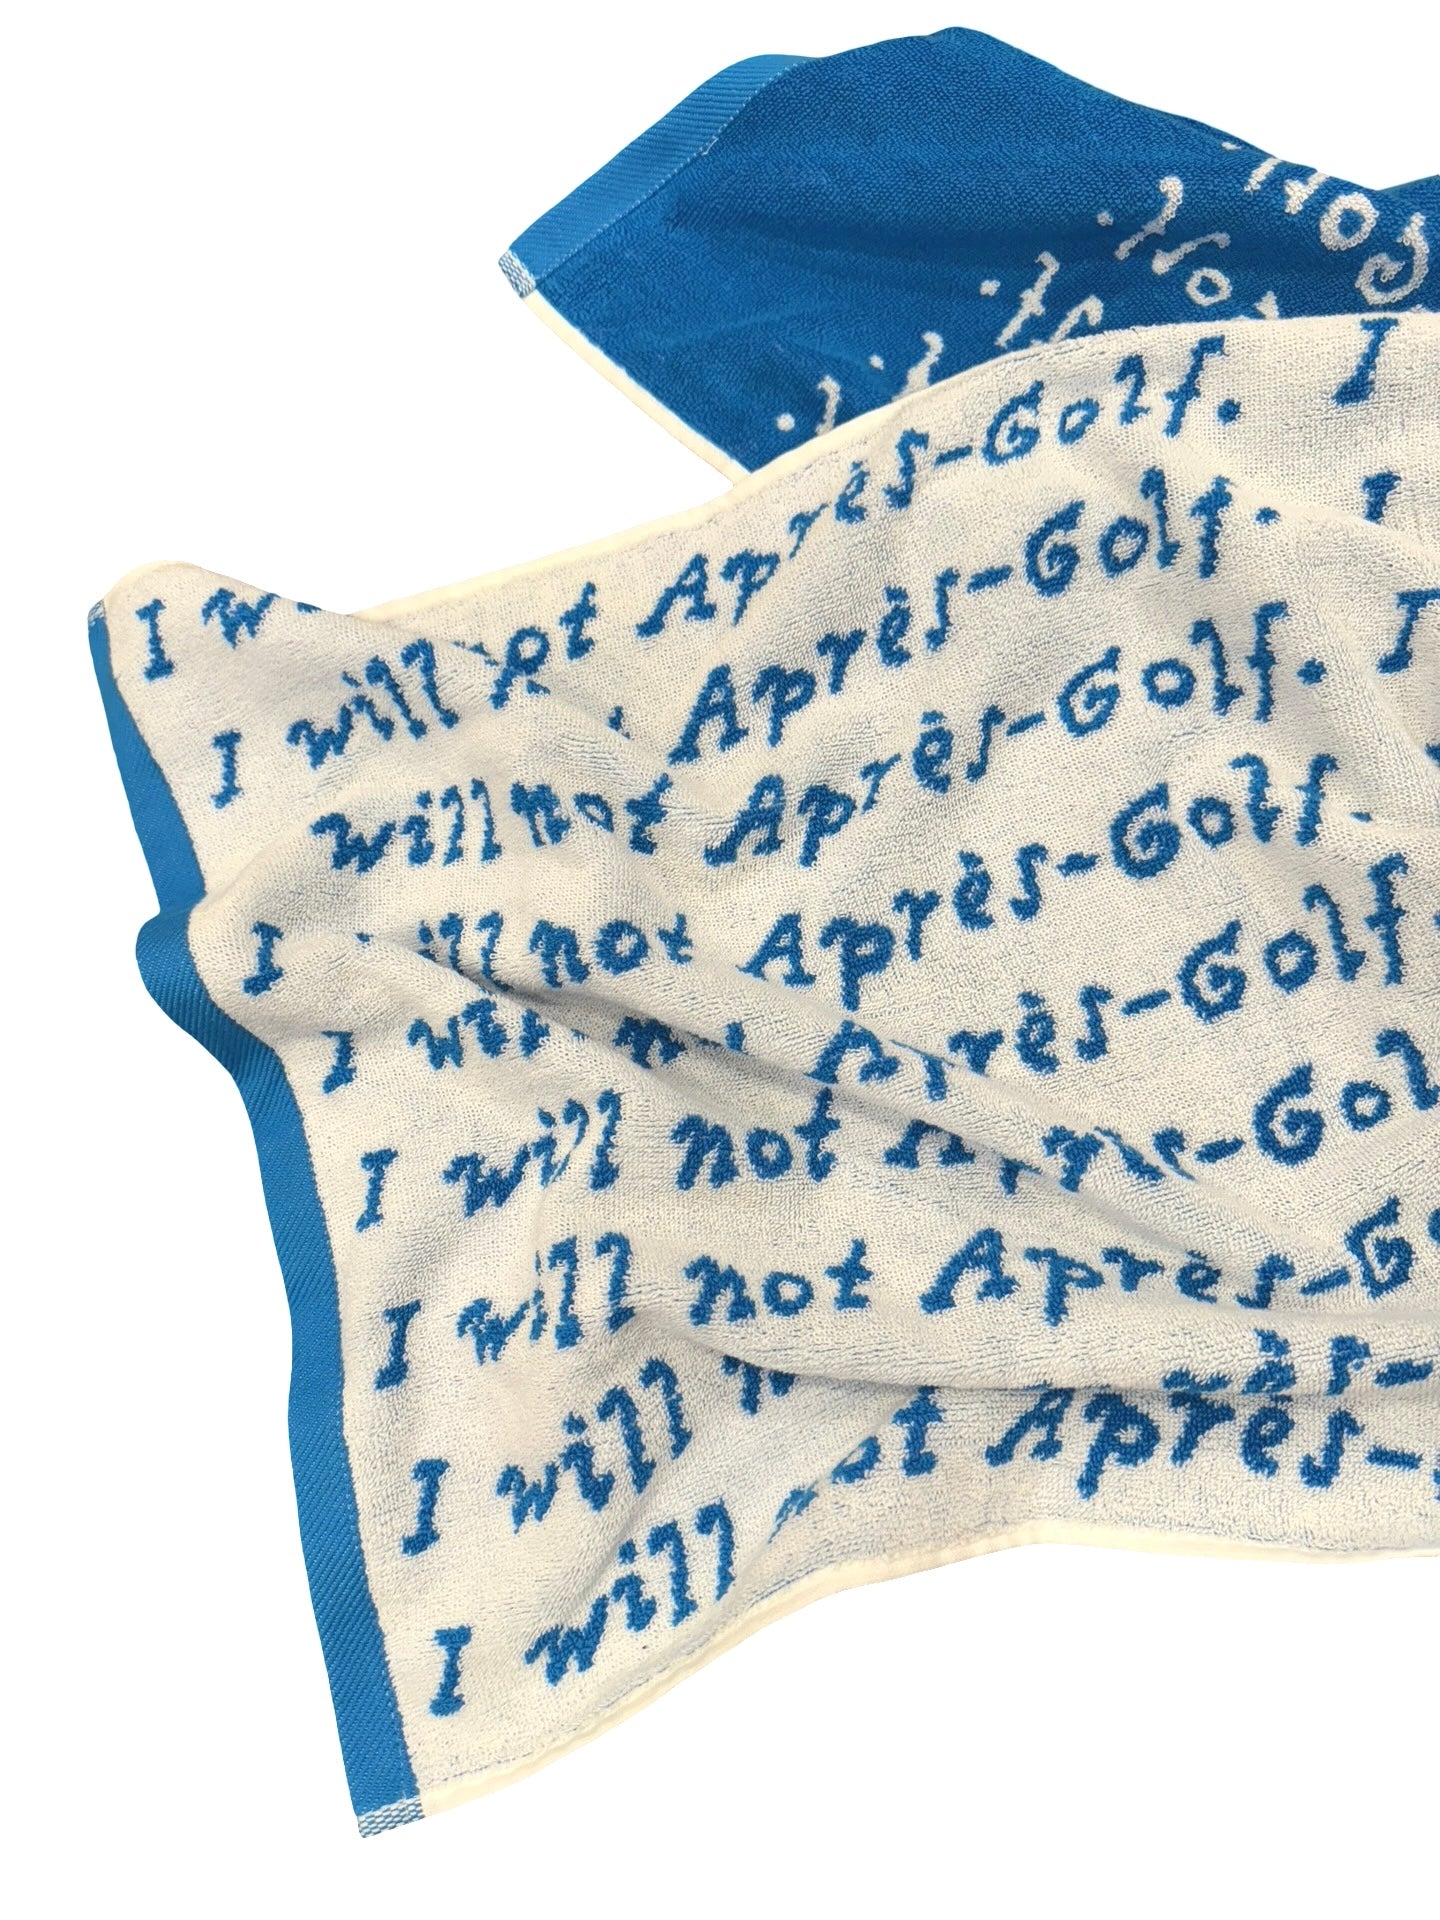 I Après-Golf. I
I will not Après-Golf. I
will not Après-Golf. I
I will not Après-Golf.
I will not Après-Golf
I will not Gol
I will not Après-G
I will ès-
I will Après-